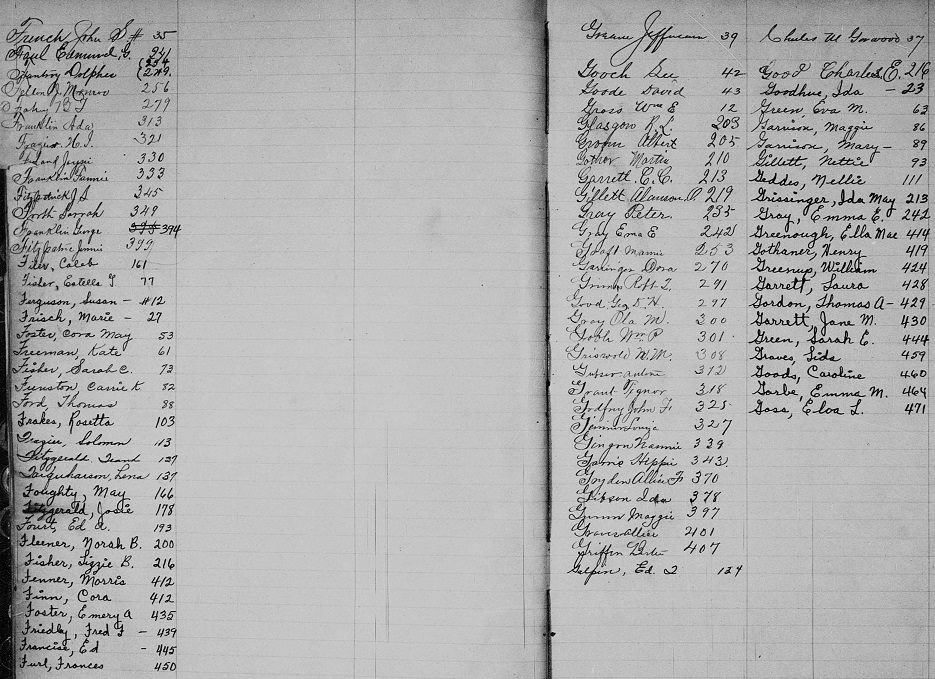 French John S # 35
Faul Edmund G. 241
Dolphus 279
Monroe 256
279
Franklin Ada 313
Frazier H. J. 321
330
Franklin Fannie 333
Fitzpatrick J S 345
Forth Sarrah 349
Franklin George 394
Fitzpatric Jennie 399
Filer, Caleb 161
Fisher, Estella J 77
Ferguson, Susan - #12
Frisch, Marie - 27
Foster, Cora May 53
Freeman, Kate 61
Fisher, Sarah C. 73
Funston, Carrie K 82
Ford, Thomas 88
Frakes, Rosetta 103
Frazier, Solomon 113
Fitzgerald, 127
Farquharson, Lena 137
Foughty, May 166
Fitzgerald, Josie 178
Foust, Ed A. 193
Fleener, Norah B. 200
Fisher, Lizzie B. 216
Fenner, Morris 412
Finn, Cora 412
Foster, Emery A 435
Friedly, Fred F - 439
Francise, Ed - 445
Furl, Frances 450
Jefferson 39
Gooch Geo 42
Goode David 43
Gross Wm E 12
Glasgow R. L. 203
Groom Albert 205
Gother Martin 210
Garrett C. C. 213
Gillett Alanson O. 219
Gray Peter 235
Gray Emma E 242
Graft Mamie 253
Garinger Dora 270
Robt L. 291
Good Geo D H. 297
Gray Ola M. 300
Goble Wm P 301
Griswold M. M. 308
312
Grant 318
Godfrey John F 325
327
Gingon Nannie 339
Hippie 343
Goyden Allie F 370
Gibson Ida 378
Gunn Maggie 397
Graves Allie 401
Griffin 407
Galpin, Ed. 124
37
Good Charles E. 216
Goodhue, Ida - 23
Green, Eva M. 63
Garrison, Maggie 86
Garrison, Mary - 89
Gillett, Nettie 93
Geddes, Nellie 111
Grissinger, Ida May 213
Gray, Emma E. 242
Greenough, Ella Mae 414
Gothaner, Henry 419
Greenup, William 424
Garrett, Laura 428
Gordon, Thomas A - 429
Garrett, Jane M. 430
Green, Sarah E. 444
Graves, Lida 459
Goods, Caroline 460
Garbe, Emma M. 464
Goss, Eloa L. 471